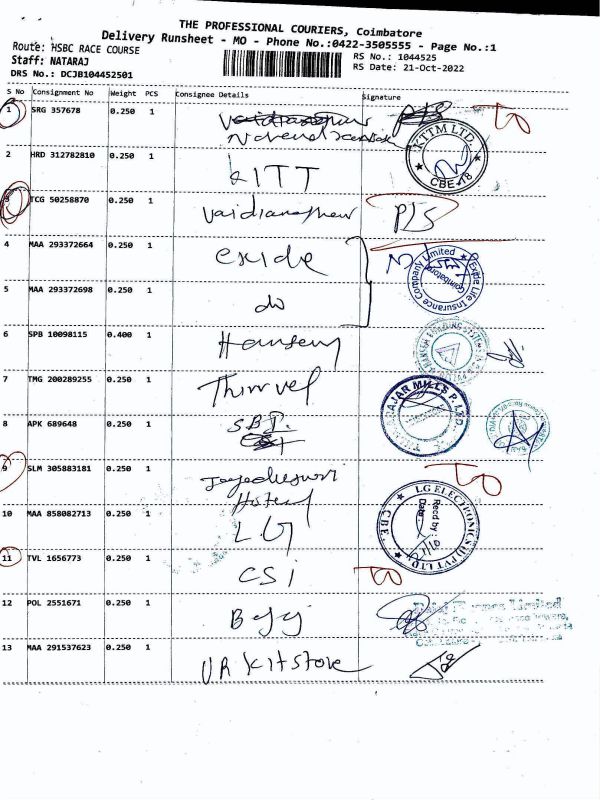 THE PROFESSIONAL COURIERS, Coimbatore
Delivery Runsheet - MO - Phone No.:0422-3505555 - Page No.:1
Route: HSBC RACE COURSE
Staff: NATARAJ
DRS No.: DCJB104452501
RS No.: 1044525
RS Date: 21-Oct-2022
S No Consignment No Weight PCS Consignee Details Signature
1 SRG 357678 0.250 1
KTTM LTD.
CBE-18
2 HRD 312782810 0.250 1 KITT
3 TCG 50258870 0.250 1
4 MAA 293372664 0.250 1 exide
Exide Life Insurance Company Limited
Coimbatore
5 MAA 293372698 0.250 1 do
6 SPB 10098115 0.400 1
7 TMG 200289255 0.250 1
RAJAR MILLS P. LTD.
8 APK 689648 0.250 1 SBI
9 SLM 305883181 0.250 1
Hotel
10 MAA 858082713 0.250 1 LG
LG ELECTRONICS (I) PVT LTD
Recd by
Date
CBE.
11 TVL 1656773 0.250 1 CSI
12 POL 2551671 0.250 1
Limited
13 MAA 291537623 0.250 1 UR Kitstore